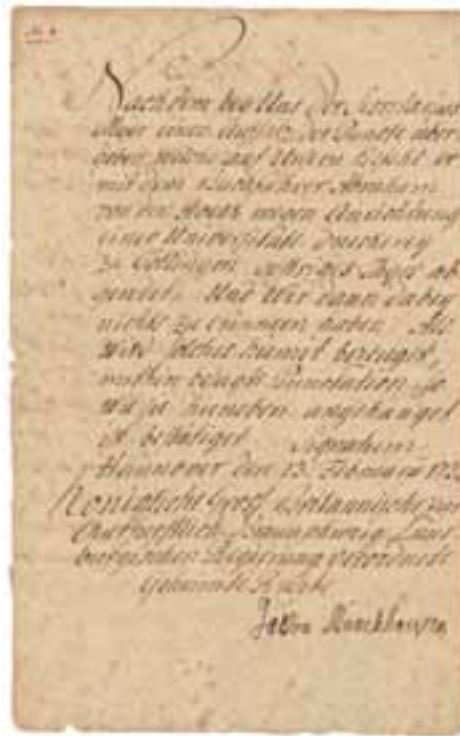 Nachdem bey Uns der Secretarius
einen der Puncte über
geben, auf Unsern er
mit dem Buchführer Abraham
von der Hoeck wegen Anrichtung
einer Universitäts Druckerey
zu Göttingen ab
geredet, Und Wir dann dabey
nichts zu erinnern haben, Als
Wird solches hiemit bezeuget,
Punctation so
wie sie hieneben angehänget
ist, bestätiget. Signatum
Hannover den 13. Februarii 173
Königliche Groß Britannische zur
Churfürstlich Braunschweig Lüne
burgischen Regierung verordnete
Geheimte Räthe
Münchhausen